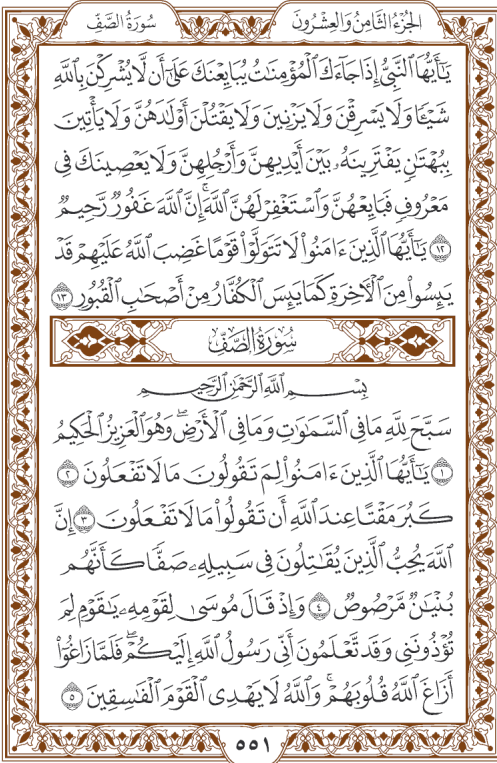 الجُزْءُ الثَّامِنُ وَالْعِشْرُونَ سُورَةُ الصَّفِّ
يَٰٓأَيُّهَا ٱلنَّبِيُّ إِذَا جَآءَكَ ٱلْمُؤْمِنَٰتُ يُبَايِعْنَكَ عَلَىٰٓ أَن لَّا يُشْرِكْنَ بِٱللَّهِ
شَيْـًٔا وَلَا يَسْرِقْنَ وَلَا يَزْنِينَ وَلَا يَقْتُلْنَ أَوْلَٰدَهُنَّ وَلَا يَأْتِينَ
بِبُهْتَٰنٍ يَفْتَرِينَهُۥ بَيْنَ أَيْدِيهِنَّ وَأَرْجُلِهِنَّ وَلَا يَعْصِينَكَ فِى
مَعْرُوفٍ فَبَايِعْهُنَّ وَٱسْتَغْفِرْ لَهُنَّ ٱللَّهَ ۚ إِنَّ ٱللَّهَ غَفُورٌ رَّحِيمٌ
١٢ يَٰٓأَيُّهَا ٱلَّذِينَ ءَامَنُوا۟ لَا تَتَوَلَّوْا۟ قَوْمًا غَضِبَ ٱللَّهُ عَلَيْهِمْ قَدْ
يَئِسُوا۟ مِنَ ٱلْءَاخِرَةِ كَمَا يَئِسَ ٱلْكُفَّارُ مِنْ أَصْحَٰبِ ٱلْقُبُورِ ١٣
سُورَةُ الصَّفِّ
بِسْمِ ٱللَّهِ ٱلرَّحْمَٰنِ ٱلرَّحِيمِ
سَبَّحَ لِلَّهِ مَا فِى ٱلسَّمَٰوَٰتِ وَمَا فِى ٱلْأَرْضِ ۖ وَهُوَ ٱلْعَزِيزُ ٱلْحَكِيمُ
١ يَٰٓأَيُّهَا ٱلَّذِينَ ءَامَنُوا۟ لِمَ تَقُولُونَ مَا لَا تَفْعَلُونَ ٢
كَبُرَ مَقْتًا عِندَ ٱللَّهِ أَن تَقُولُوا۟ مَا لَا تَفْعَلُونَ ٣ إِنَّ
ٱللَّهَ يُحِبُّ ٱلَّذِينَ يُقَٰتِلُونَ فِى سَبِيلِهِۦ صَفًّا كَأَنَّهُم
بُنْيَٰنٌ مَّرْصُوصٌ ٤ وَإِذْ قَالَ مُوسَىٰ لِقَوْمِهِۦ يَٰقَوْمِ لِمَ
تُؤْذُونَنِى وَقَد تَّعْلَمُونَ أَنِّى رَسُولُ ٱللَّهِ إِلَيْكُمْ ۖ فَلَمَّا زَاغُوٓا۟
أَزَاغَ ٱللَّهُ قُلُوبَهُمْ ۚ وَٱللَّهُ لَا يَهْدِى ٱلْقَوْمَ ٱلْفَٰسِقِينَ ٥
٥٥١